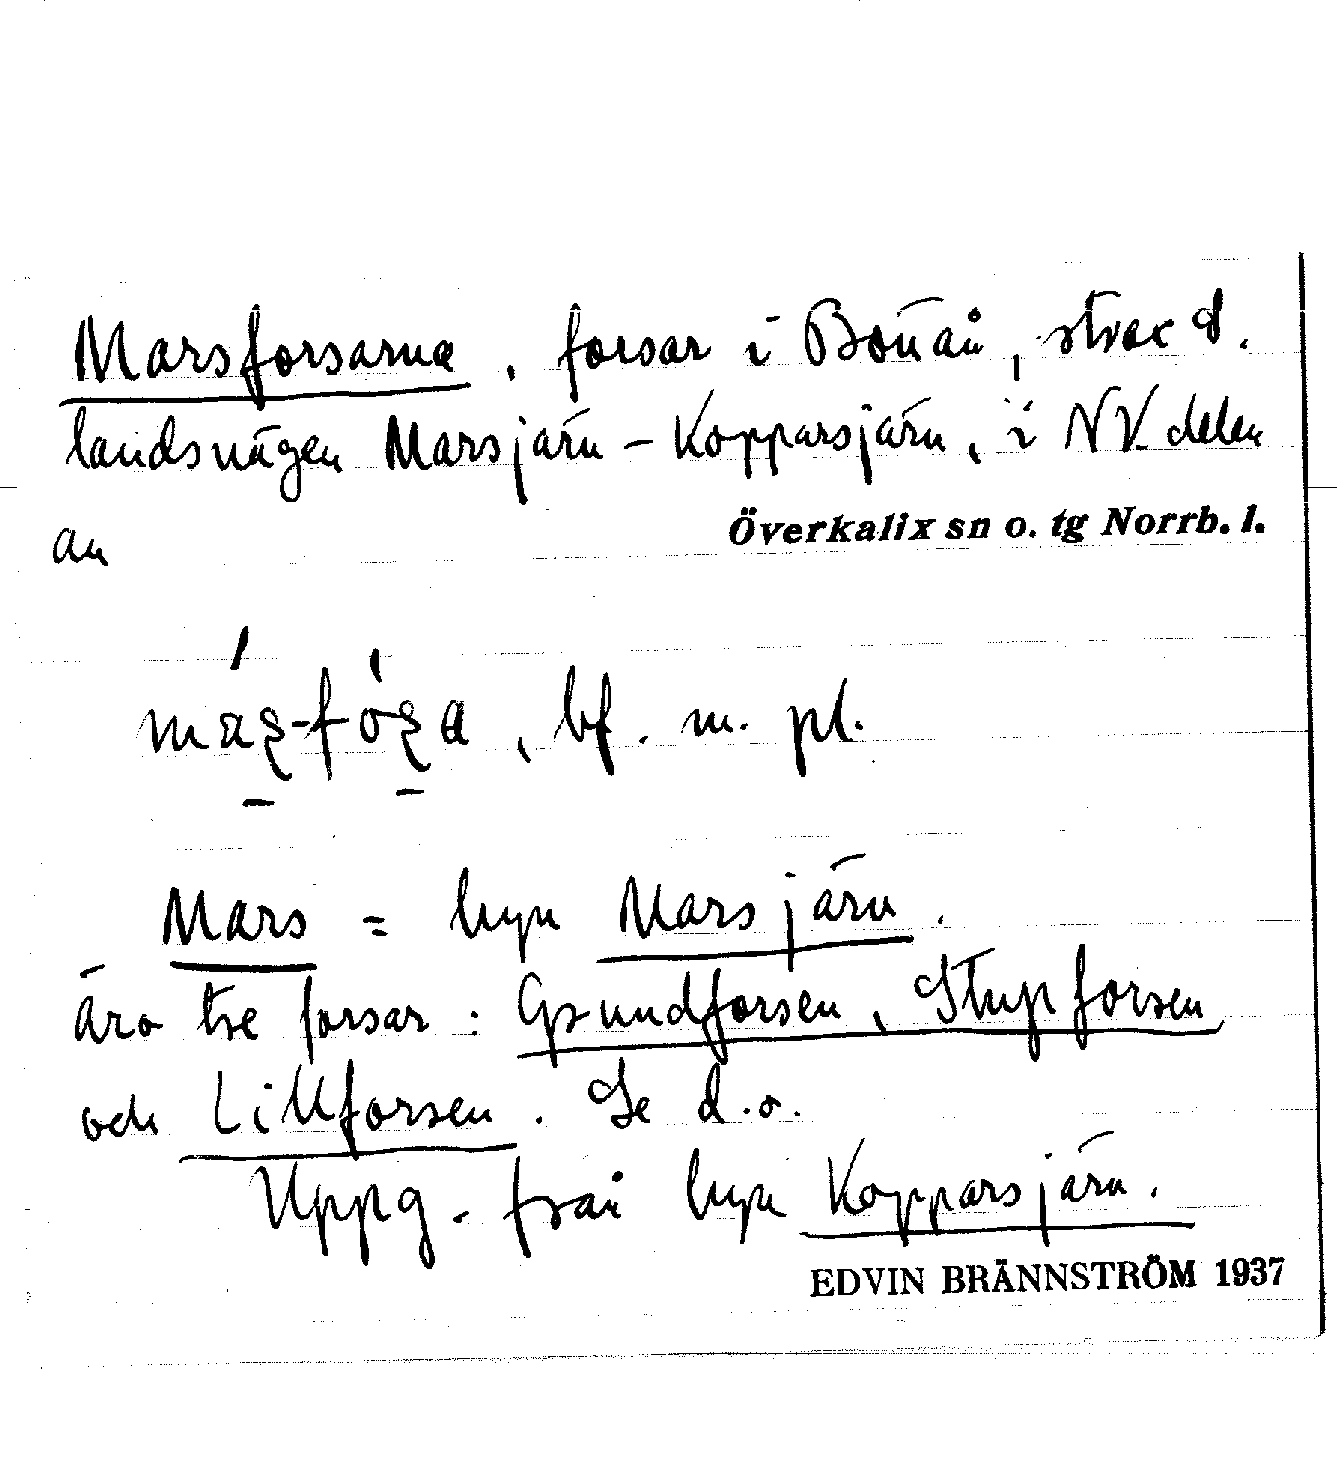 Marsforsarna, forsar i Bönån, strax S.
landsvägen Marsjärn – Kopparsjärn, i NV. delen
av
Överkalix sn o. tg Norrb. l.
bf. m. pl.
Mars = byn Marsjärv.
äro tre forsar: Grundforsen, Stupforsen
och Lillforsen. Se d.o.
Uppg. från byn Kopparsjärv.
EDVIN BRÄNNSTRÖM 1937